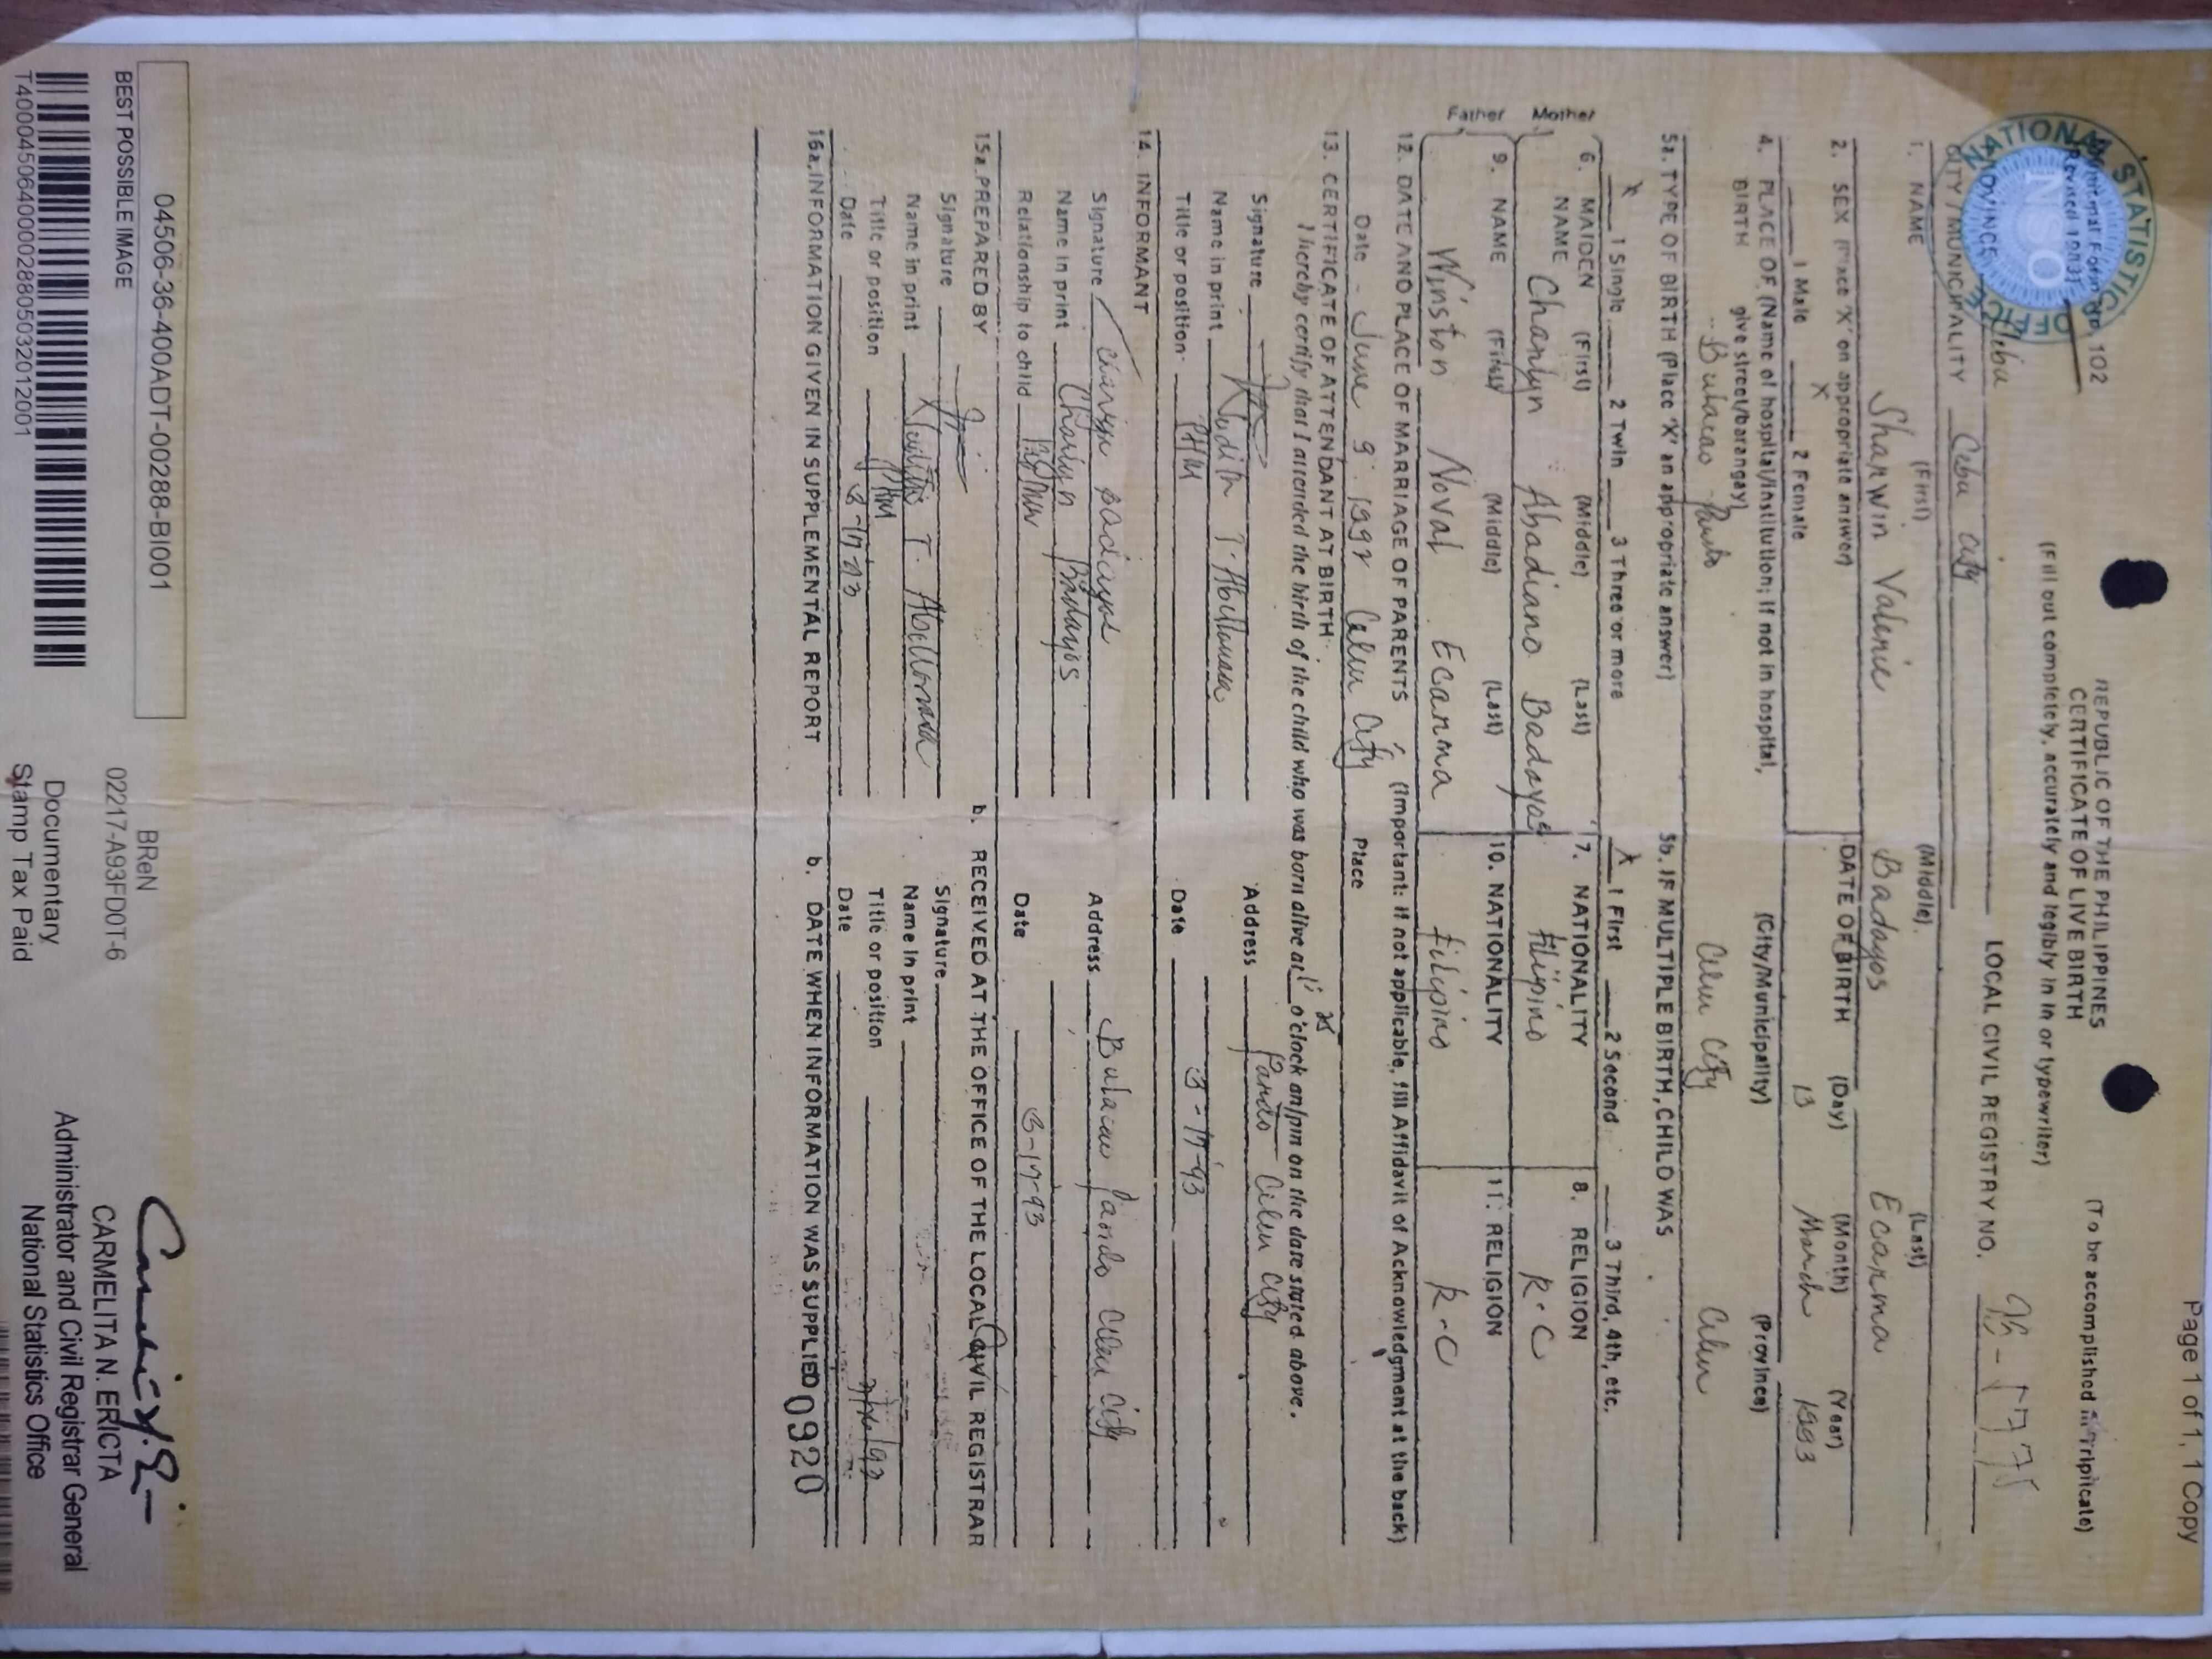 Page 1 of 1, 1 Copy
Municipal Form No. 102
(Revised 1983)
(To be accomplished in triplicate)
REPUBLIC OF THE PHILIPPINES
CERTIFICATE OF LIVE BIRTH
(Fill out completely, accurately and legibly in in or typewriter)
NATIONAL STATISTICS OFFICE
NSO
PROVINCE Cebu
LOCAL CIVIL REGISTRY NO.
CITY/MUNICIPALITY Cebu City
1. NAME (First) (Middle) (Last)
Sharwin Valerie Badayos Ecarma
2. SEX (Place 'X' on appropriate answer)
DATE OF BIRTH (Day) (Month) (Year)
1 Male X 2 Female
13 March 1993
4. PLACE OF (Name of hospital/institution; if not in hospital, (City/Municipality) (Province)
BIRTH give street/barangay)
Bulacao Pardo Cebu City Cebu
5a. TYPE OF BIRTH (Place 'X' an appropriate answer)
5b. IF MULTIPLE BIRTH, CHILD WAS
X 1 Single 2 Twin 3 Three or more
X 1 First 2 Second 3 Third, 4th, etc.
Mother
6. MAIDEN (First) (Middle) (Last) 7. NATIONALITY 8. RELIGION
NAME Charlyn Abadiano Badayos Filipino R.C
Father
9. NAME (First) (Middle) (Last) 10. NATIONALITY 11. RELIGION
Winston Noval Ecarma Filipino R.C
12. DATE AND PLACE OF MARRIAGE OF PARENTS (Important: If not applicable, fill Affidavit of Acknowledgment at the back)
Date - June 9, 1992 Cebu City Place
13. CERTIFICATE OF ATTENDANT AT BIRTH
I hereby certify that I attended the birth of the child who was born alive at o'clock am/pm on the date stated above.
Signature Address Pardo Cebu City
Name in print Judith T. Abellanosa
Title or position PHM Date 3-17-93
14. INFORMANT
Signature Charlyn Badayos Address Bulacao Pardo Cebu City
Name in print Charlyn Badayos
Relationship to child Date 3-17-93
15a. PREPARED BY
b. RECEIVED AT THE OFFICE OF THE LOCAL CIVIL REGISTRAR
Signature Signature
Name in print Judith T. Abellanosa Name in print
Title or position PHM Title or position
Date 3-17-93 Date
16a. INFORMATION GIVEN IN SUPPLEMENTAL REPORT
b. DATE WHEN INFORMATION WAS SUPPLIED 0920
04506-36-400ADT-00288-BI001
BEST POSSIBLE IMAGE
T400045064000028805032012001
BReN
02217-A93FD0T-6
Documentary
Stamp Tax Paid
CARMELITA N. ERICTA
Administrator and Civil Registrar General
National Statistics Office